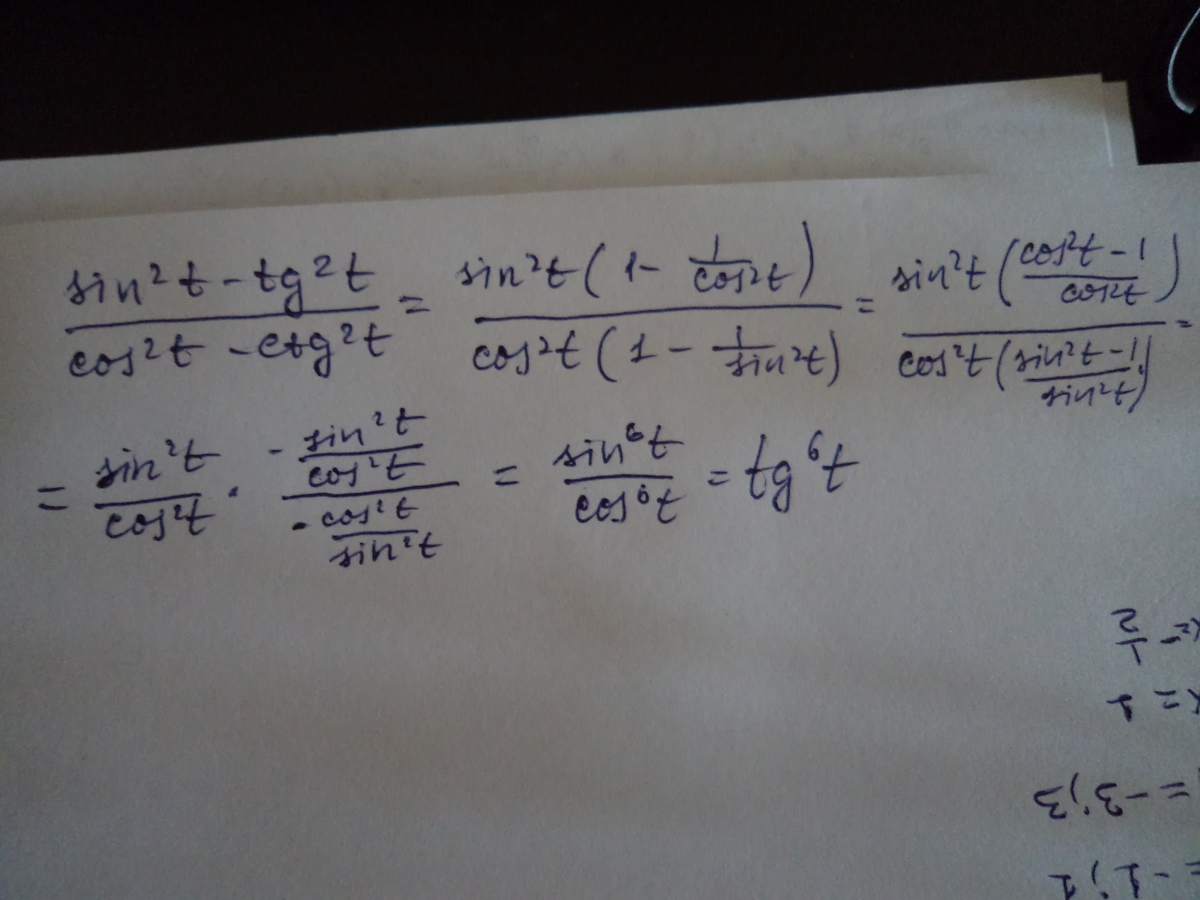 \frac{sin²t - tg²t}{cos²t - ctg²t} = \frac{sin²t (1 - \frac{1}{cos²t})}{cos²t (1 - \frac{1}{sin²t})} = \frac{sin²t (\frac{cos²t - 1}{cos²t})}{cos²t (\frac{sin²t - 1}{sin²t})} =
= \frac{sin²t}{cos²t} · \frac{-\frac{sin²t}{cos²t}}{-\frac{cos²t}{sin²t}} = \frac{sin⁶t}{cos⁶t} = tg⁶t
= -1; 1
= -3; 3
x = 1
x = \frac{1}{2}